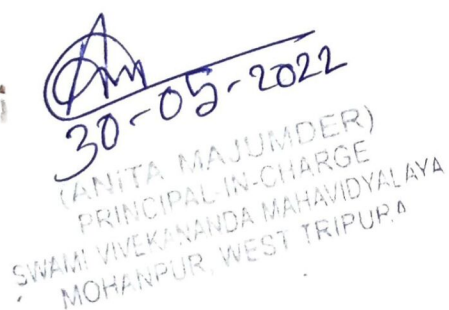 30-05-2022
(ANITA MAJUMDER)
PRINCIPAL-IN-CHARGE
SWAMI VIVEKANANDA MAHAVIDYALAYA
MOHANPUR, WEST TRIPURA